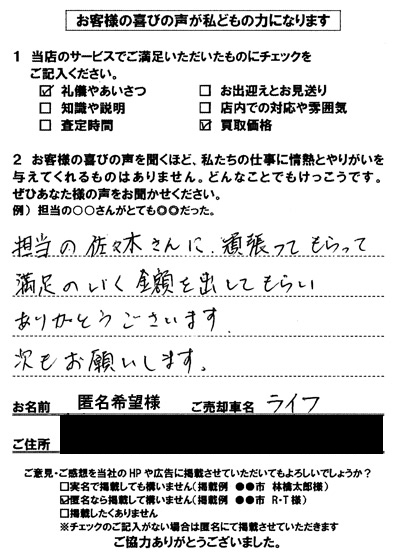 お客様の喜びの声が私どもの力になります
1 当店のサービスでご満足いただいたものにチェックを
ご記入ください。
☑ 礼儀やあいさつ □ お出迎えとお見送り
□ 知識や説明 □ 店内での対応や雰囲気
□ 査定時間 ☑ 買取価格
2 お客様の喜びの声を聞くほど、私たちの仕事に情熱とやりがいを
与えてくれるものはありません。どんなことでもけっこうです。
ぜひあなた様の声をお聞かせください。
例）担当の○○さんがとても◎◎だった。
担当の佐々木さんに、頑張ってもらって
満足のいく金額を出してもらい
ありがとうございます。
次もお願いします。
お名前 匿名希望様 ご売却車名 ライフ
ご住所
ご意見・ご感想を当社のHPや広告に掲載させていただいてもよろしいでしょうか？
□実名で掲載しても構いません（掲載例 ●●市 林檎太郎様）
☑匿名なら掲載して構いません（掲載例 ●●市 R・T様）
□掲載したくありません
※チェックのご記入がない場合は匿名にて掲載させていただきます
ご協力ありがとうございました。